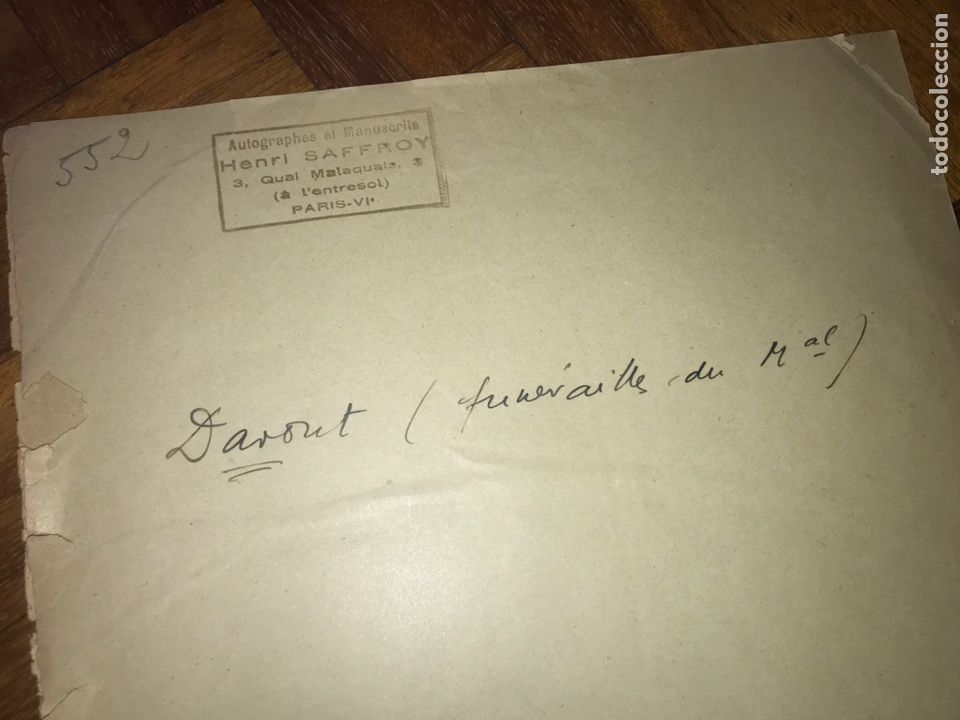 552
Autographes et Manuscrits
Henri SAFFROY
3, Quai Malaquais, 3
(à l'entresol)
PARIS-VIe
Davout (funérailles du Mal)
todocoleccion